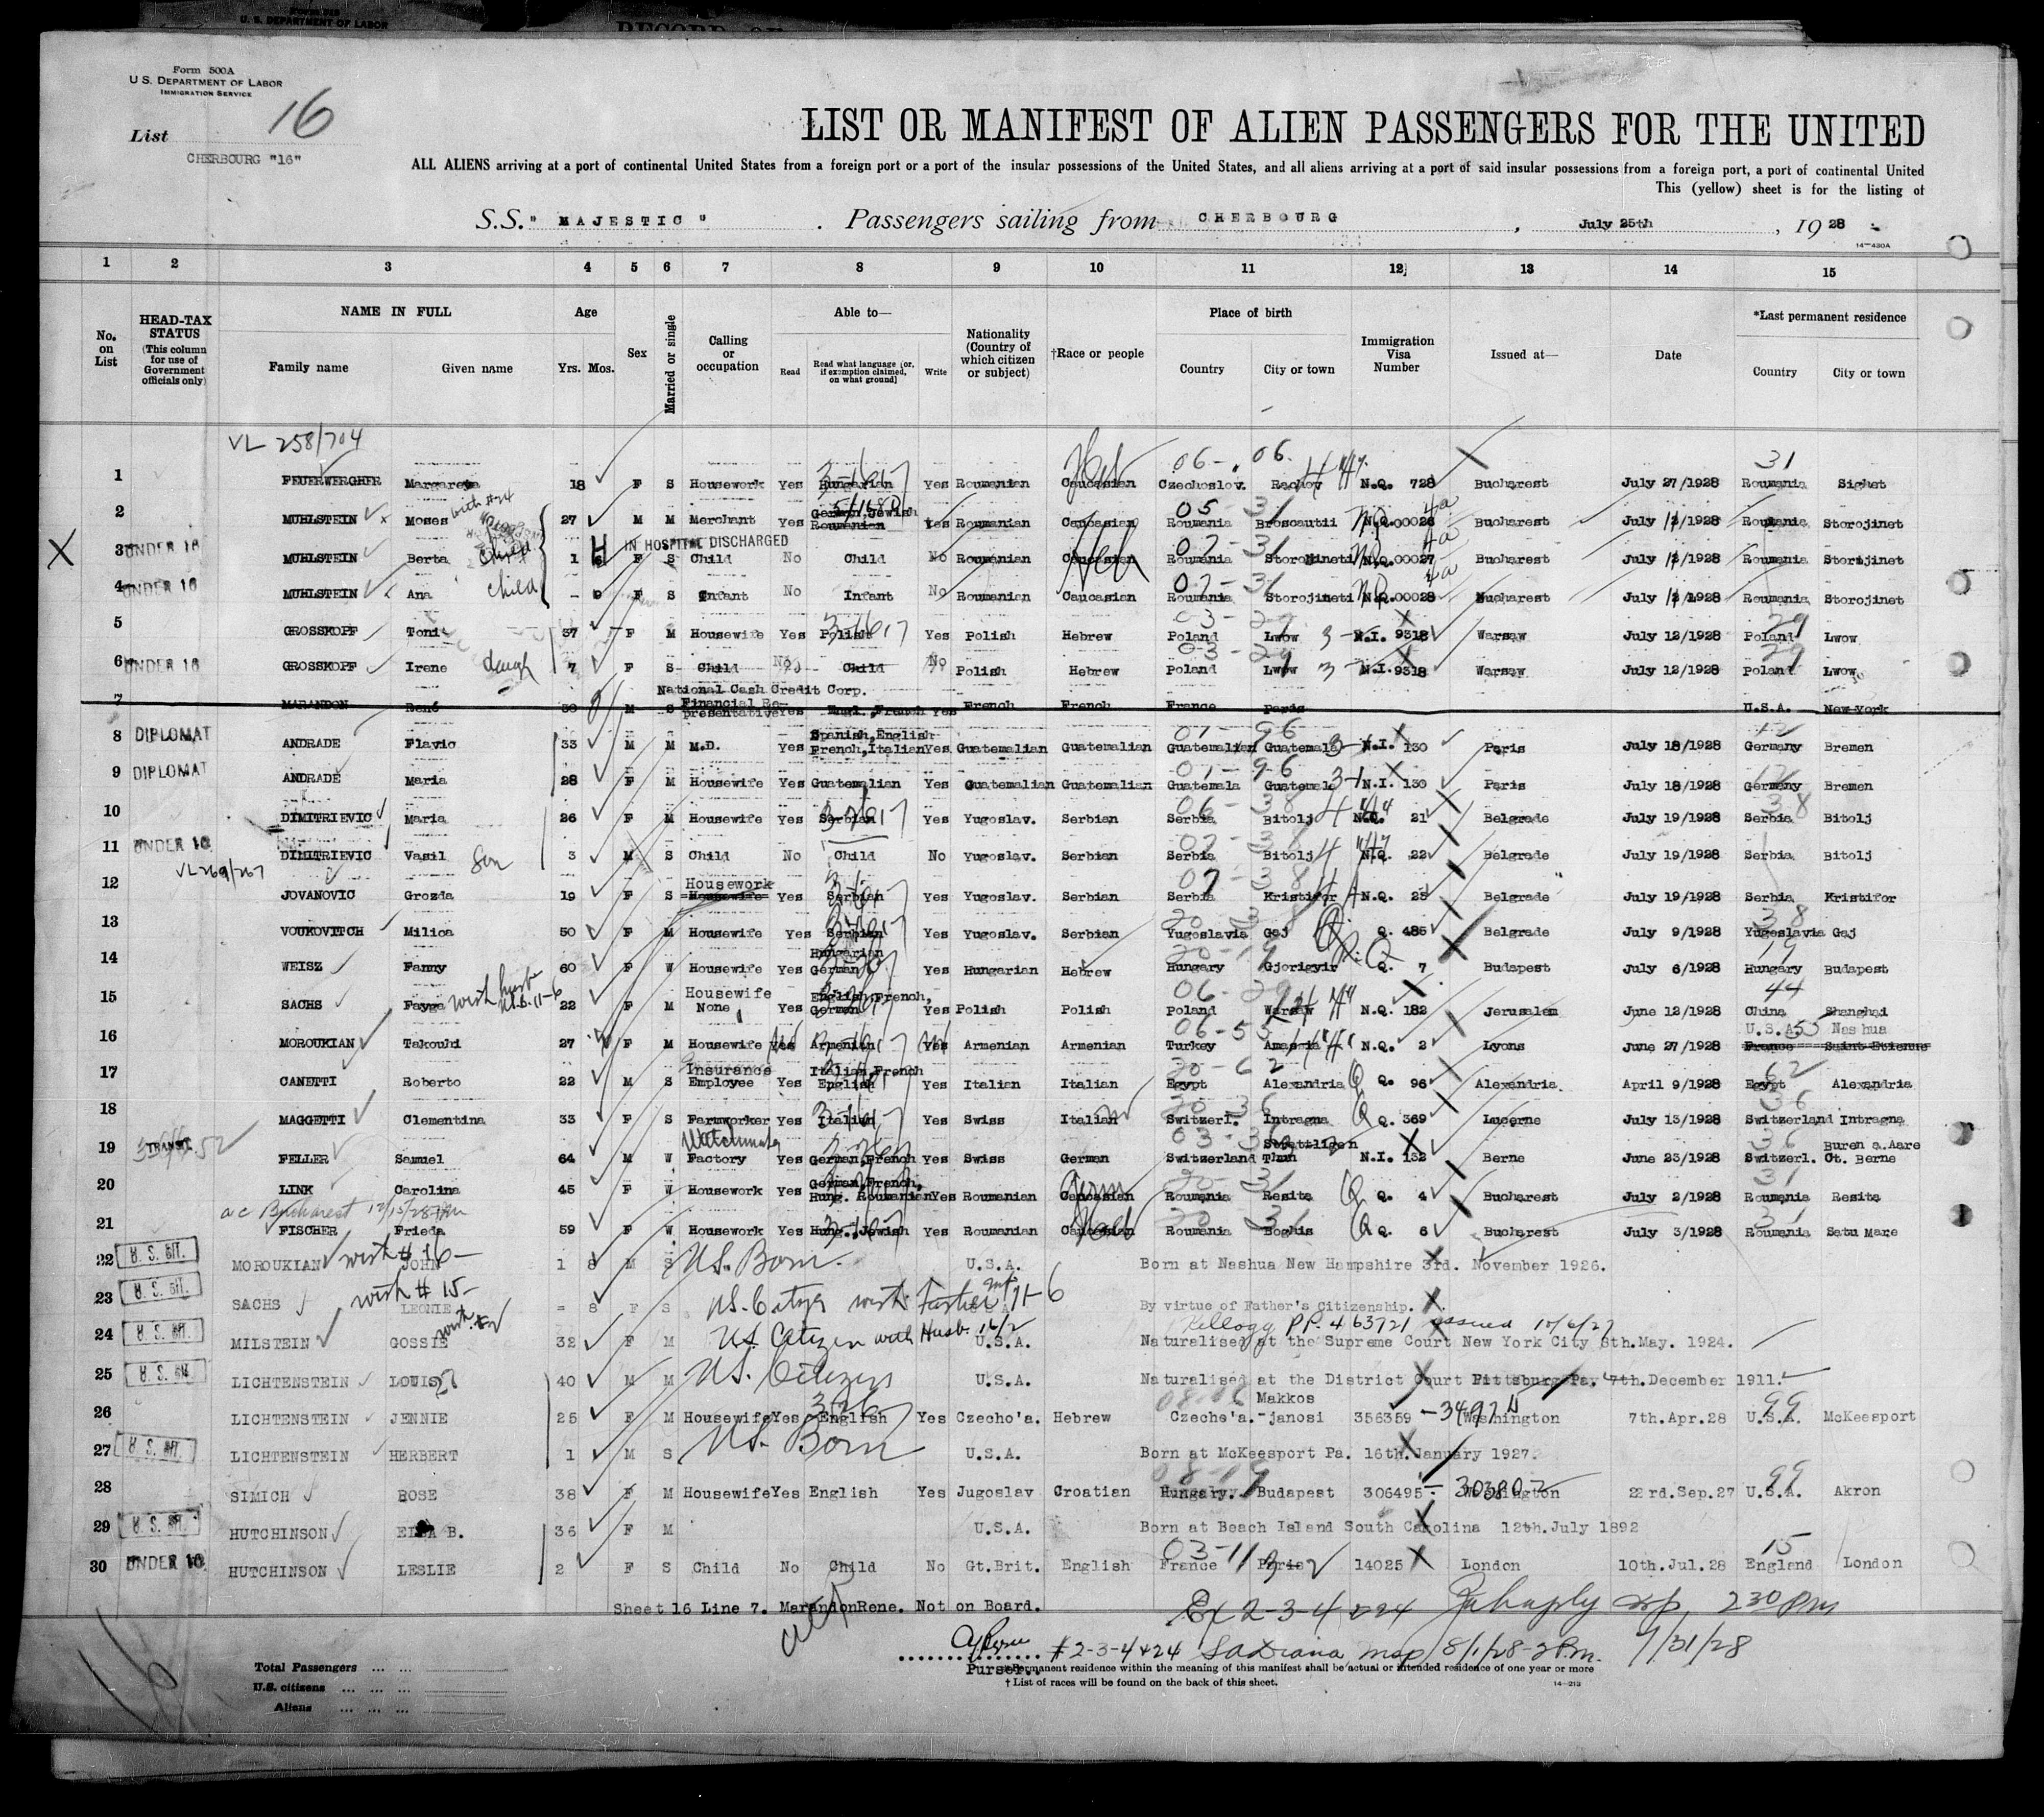 Form 500A
U. S. DEPARTMENT OF LABOR
IMMIGRATION SERVICE
List 16
CHERBOURG "16"
LIST OR MANIFEST OF ALIEN PASSENGERS FOR THE UNITED
ALL ALIENS arriving at a port of continental United States from a foreign port or a port of the insular possessions of the United States, and all aliens arriving at a port of said insular possessions from a foreign port, a port of continental United
This (yellow) sheet is for the listing of
S.S. " MAJESTIC " . Passengers sailing from CHERBOURG , July 25th , 19 28
14—430A
1 2 3 4 5 6 7 8 9 10 11 12 13 14 15
No. on List
HEAD-TAX STATUS (This column for use of Government officials only)
NAME IN FULL Family name Given name
Age Yrs. Mos.
Sex
Married or single
Calling or occupation
Able to— Read Read what language (or, if exemption claimed, on what ground) Write
Nationality (Country of which citizen or subject)
†Race or people
Place of birth Country City or town
Immigration Visa Number
Issued at—
Date
*Last permanent residence Country City or town
VL 258/704
1 FEUERWERGHER Margareta 18 F S Housework Yes Hungarian Yes Roumanian Caucasian Czechoslov. Rachov N.Q. 728 Bucharest July 27/1928 Roumania Sighet
2 MUHLSTEIN Moses with #24 27 M M Merchant Yes German, Jewish Roumanian Yes Roumanian Caucasian Roumania Broscautii N.Q. 00026 Bucharest July 12/1928 Roumania Storojinet
X 3 UNDER 16 MUHLSTEIN Berta child 1 6 IN HOSPITAL DISCHARGED F S Child No Child No Roumanian Caucasian Roumania Storojineti N.Q. 00027 Bucharest July 12/1928 Roumania Storojinet
4 UNDER 16 MUHLSTEIN Ana child - 9 F S Infant No Infant No Roumanian Caucasian Roumania Storojineti N.Q. 00028 Bucharest July 12/1928 Roumania Storojinet
5 GROSSKOPF Toni 37 F M Housewife Yes Polish Yes Polish Hebrew Poland Lwow N.I. 9318 Warsaw July 12/1928 Poland Lwow
6 UNDER 16 GROSSKOPF Irene daugh 7 F S Child No Child No Polish Hebrew Poland Lwow N.I. 9318 Warsaw July 12/1928 Poland Lwow
7 MARANDON René 30 M S National Cash Credit Corp. Financial Representative Yes Engl., French Yes French French France Paris U.S.A. New York
8 DIPLOMAT ANDRADE Flavio 33 M M M.D. Yes Spanish, English French, Italian Yes Guatemalian Guatemalian Guatemalian Guatemala N.I. 130 Paris July 18/1928 Germany Bremen
9 DIPLOMAT ANDRADE Maria 28 F M Housewife Yes Guatemalian Yes Guatemalian Guatemalian Guatemala Guatemala N.I. 130 Paris July 18/1928 Germany Bremen
10 DIMITRIEVIC Maria 26 F M Housewife Yes Serbian Yes Yugoslav. Serbian Serbia Bitolj N.Q. 21 Belgrade July 19/1928 Serbia Bitolj
11 UNDER 16 DIMITRIEVIC Vasil Son 3 M S Child No Child No Yugoslav. Serbian Serbia Bitolj N.Q. 22 Belgrade July 19/1928 Serbia Bitolj
VL 269/267
12 JOVANOVIC Grozda 19 F S Housework Housewife Yes Serbian Yes Yugoslav. Serbian Serbia Kristifor N.Q. 23 Belgrade July 19/1928 Serbia Kristifor
13 VOUKOVITCH Milica 50 F M Housewife Yes Serbian Yes Yugoslav. Serbian Yugoslavia Gaj Q. 485 Belgrade July 9/1928 Yugoslavia Gaj
14 WEISZ Fanny 60 F W Housewife Yes Hungarian German Yes Hungarian Hebrew Hungary Gjorigyir Q. 7 Budapest July 6/1928 Hungary Budapest
15 SACHS Fayga with husb 11-6 22 F M Housewife None Yes English, French, German Yes Polish Polish Poland Warsaw N.Q. 182 Jerusalem June 12/1928 China Shanghai
16 MOROUKIAN Takouhi 27 F M Housewife Yes Armenian Yes Armenian Armenian Turkey Amassia N.Q. 2 Lyons June 27/1928 U.S.A. Nashua France Saint-Etienne
17 CANETTI Roberto 22 M S Insurance Employee Yes Italian, French English Yes Italian Italian Egypt Alexandria Q. 96 Alexandria. April 9/1928 Egypt Alexandria
18 MAGGETTI Clementina 33 F S Farmworker Yes Italian Yes Swiss Italian Switzerl. Intragna Q. 369 Lucerne July 13/1928 Switzerland Intragna
19 TRANSIT FELLER Samuel 64 M W Factory Yes German, French Yes Swiss German Switzerland Strattligen Thun N.I. 132 Berne June 23/1928 Switzerl. Buren a.Aare Ct. Berne
20 LINK Carolina 45 F W Housework Yes German, French, Hung. Roumanian Yes Roumanian Caucasian Germ Roumania Resita Q. 4 Bucharest July 2/1928 Roumania Resita
a/c Bucharest 12/13/28
21 FISCHER Frieda 59 F W Housework Yes Hung., Jewish Yes Roumanian Caucasian Roumania Boghis Q. 6 Bucharest July 3/1928 Roumania Satu Mare
22 U.S. CIT. MOROUKIAN with #16 JOHN 1 8 M S U.S. Born. U.S.A. Born at Nashua New Hampshire 3rd. November 1926.
23 U.S. CIT. SACHS with #15 LEONIE - 8 F S U.S. Citizen with Father 11-6 By virtue of Father's Citizenship.
Kellogg P.P. 463721 issued 10/6/27
24 U.S. CIT. MILSTEIN GOSSIE with #2 32 F M U.S. Citizen with Husb. 16/2 U.S.A. Naturalised at the Supreme Court New York City 8th. May. 1924.
25 U.S. CIT. LICHTENSTEIN LOUIS 40 M M U.S. Citizen U.S.A. Naturalised at the District Court Pittsburg Pa. 7th. December 1911.
26 LICHTENSTEIN JENNIE 25 F M Housewife Yes English Yes Czecho'a. Hebrew Czecho'a. Makkos-janosi 356359 Washington 7th.Apr.28 U.S.A. McKeesport
27 U.S. CIT. LICHTENSTEIN HERBERT 1 M S U.S. Born U.S.A. Born at McKeesport Pa. 16th. January 1927.
28 SIMICH ROSE 38 F M Housewife Yes English Yes Jugoslav Croatian Hungary. Budapest 306495 Washington 22rd.Sep.27 U.S.A. Akron
29 U.S. CIT. HUTCHINSON ELSA B. 36 F M U.S.A. Born at Beach Island South Carolina 12th. July 1892
30 UNDER 16 HUTCHINSON LESLIE 2 F S Child No Child No Gt.Brit. English France Paris 14025 London 10th.Jul.28 England London
Sheet 16 Line 7. MarandonRene. Not on Board.
Ex 2-3-4 & 24 230 PM
Purser. #2-3-4 & 24 8/1/28-2 P.m. 7/31/28
*Permanent residence within the meaning of this manifest shall be actual or intended residence of one year or more
† List of races will be found on the back of this sheet.
14—213
Total Passengers
U.S. citizens
Aliens
16